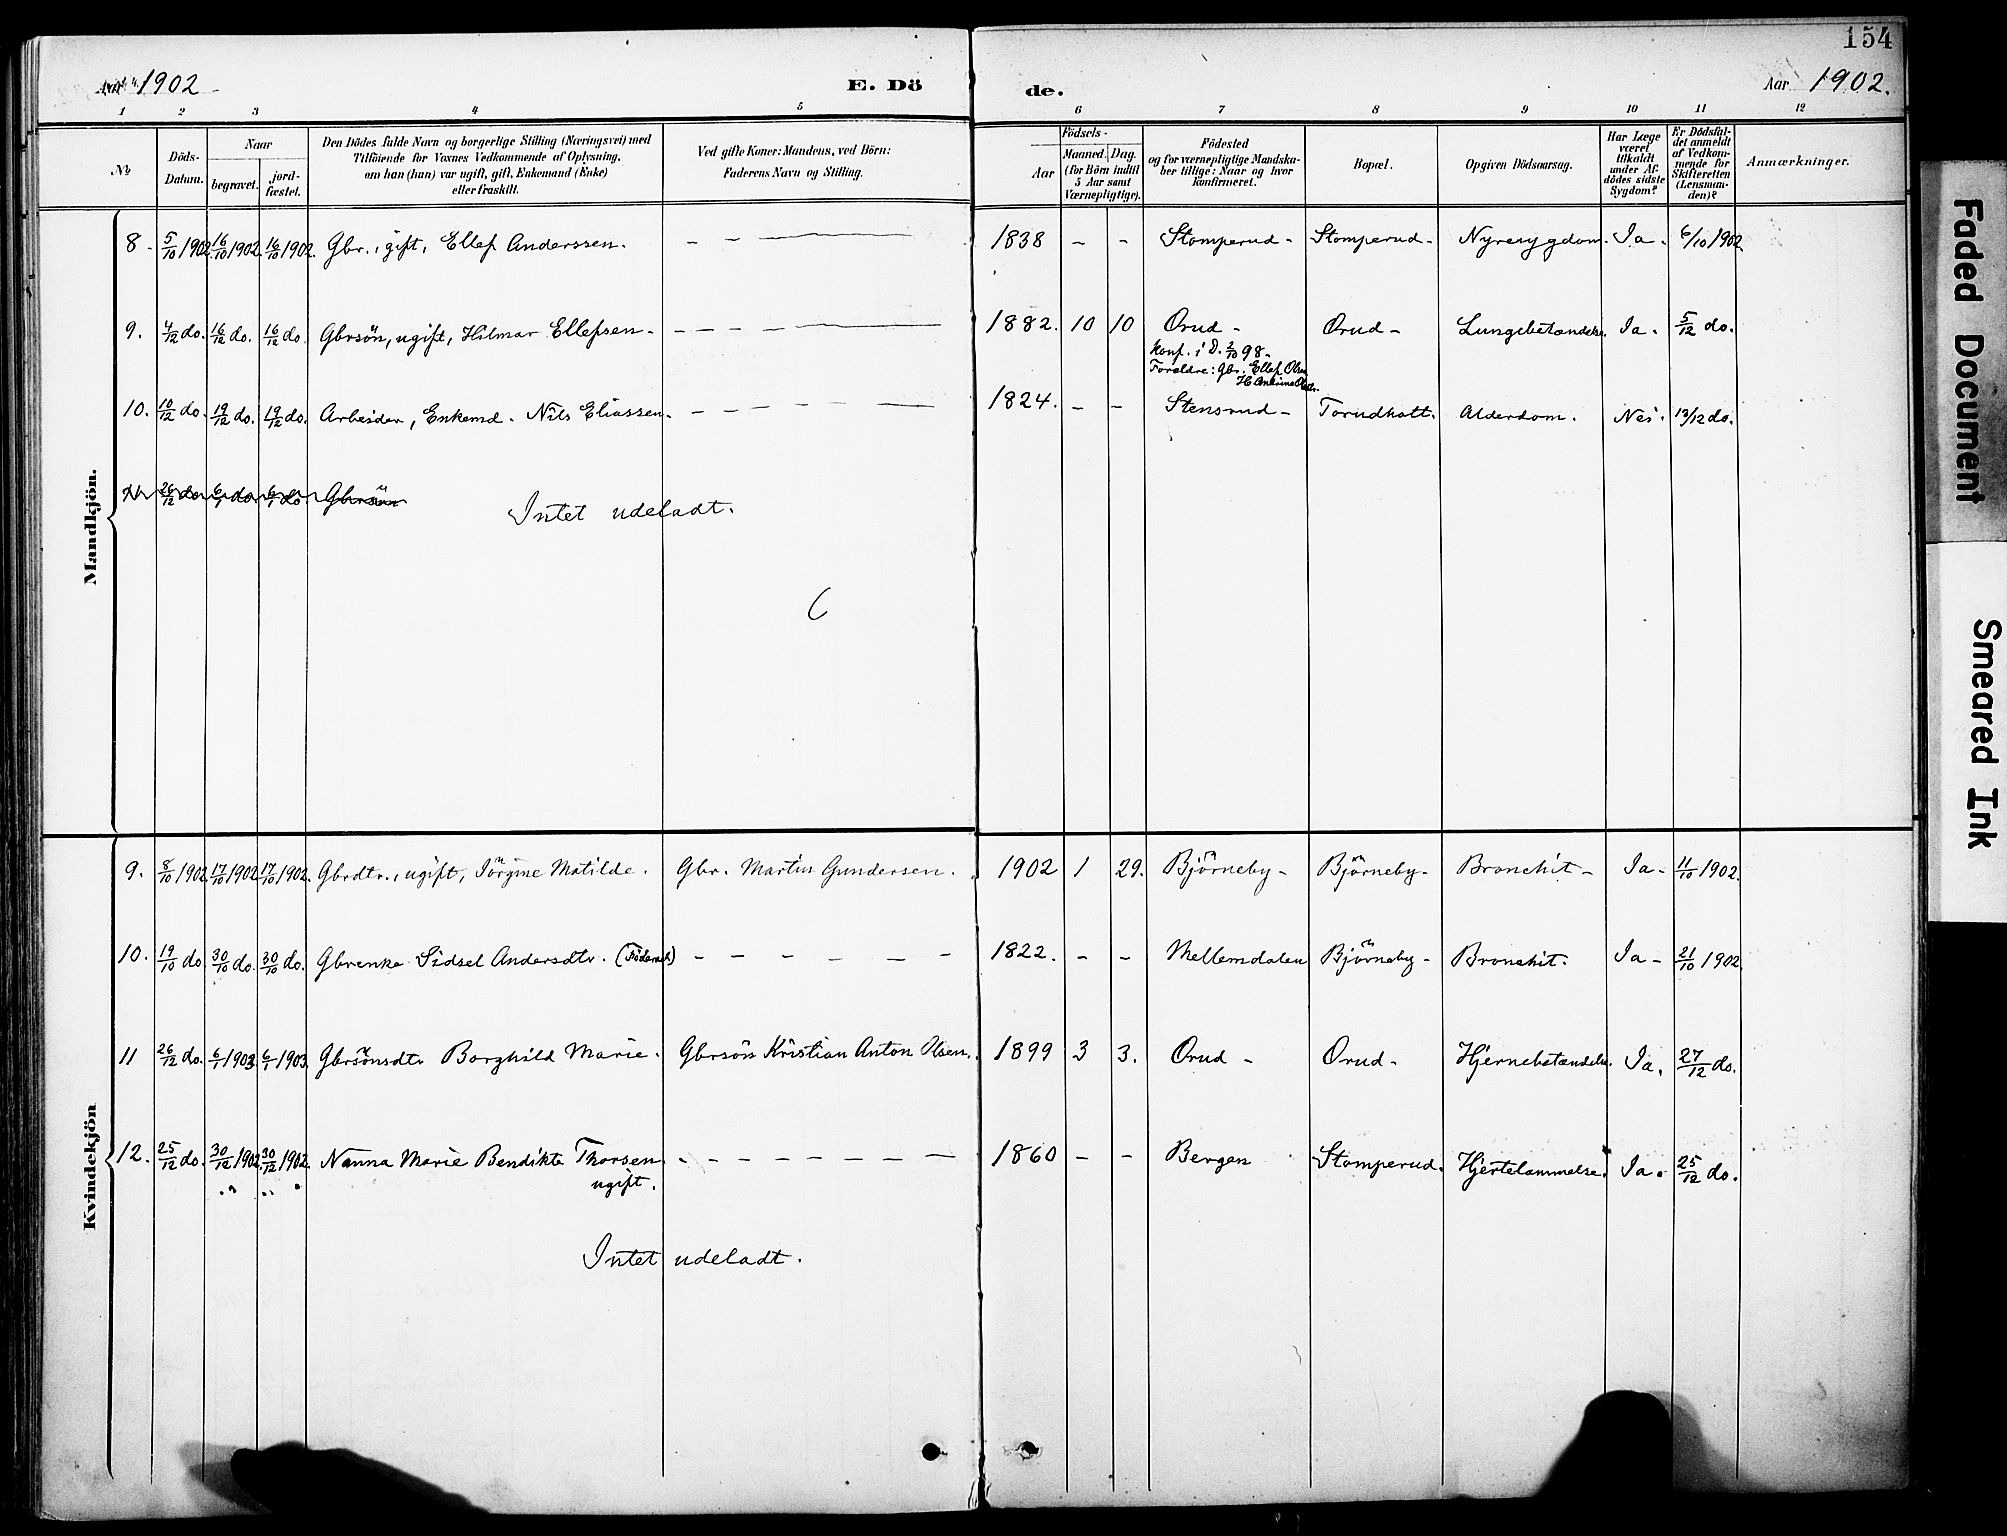 154
1902
E. Dö de.
Aar 1902.
1 2 3 4 5 6 7 8 9 10 11 12
No
Döds-Datum.
Naar
begravet.
jord-fæstet.
Den Dödes fulde Navn og borgerlige Stilling (Næringsvei) med
Tilföiende for Voxnes Vedkommende af Oplysning,
om han (hun) var ugift, gift, Enkemand (Enke)
eller fraskilt.
Ved gifte Koner: Mandens, ved Börn:
Faderens Navn og Stilling.
Födsels-
Aar
Maaned. Dag.
(for Börn indtil
5 Aar samt
Værnepligtige).
Födested
og for værnepligtige Mandska-
ber tillige: Naar og hvor
konfirmeret.
Bopæl.
Opgiven Dödsaarsag.
Har Læge
været
tilkaldt
under Af-
dödes sidste
Sygdom?
Er Dödsfal-
det anmeldt
af Vedkom-
mende for
Skifteretten
(Lensman-
den)?
Anmærkninger.
Mandkjön.
8. 5/10 1902. 16/10 1902. 16/10 1902. Gbr., gift, Ellef Anderssen. - - 1838 - - Stomperud - Stomperud - Nyresygdom. Ja. 6/10 1902
9. 4/12 do. 16/12 do. 16/12 do. Gbrsön, ugift, Hilmar Ellefsen - - - - 1882. 10 10 Orud - Orud - Lungebetændelse. Ja. 5/12 do.
konf. i D. 2/10 98 -
Forældre: Gbr. Ellef Olsen
10. 10/12 do. 19/12 do. 19/12 do. Arbeider, Enkemd. Nils Eliassen. - - - - 1824. - - Stensrud - Torudkott. Alderdom. Nei. 13/12 do.
26/12 do 6/1 do 6/1 do Gbrsön
Intet udeladt.
Kvindekjön
9. 8/10 1902. 17/10 1902. 17/10 1902. Gbrdtr., ugift, Jörgine Matilde. Gbr. Martin Gundersen. 1902 1 29. Björneby - Björneby - Bronchit - Ja - 11/10 1902.
10. 19/10 do 30/10 do. 30/10 do. Gbrenke Sidsel Andersdtr. (Föderaad) - - - - - - 1822. - - Mellemdalen Björneby - Bronchit. Ja - 21/10 1902.
11 26/12 do. 6/1 1903 6/1 1903. Gbrsönsdtr Borghild Marie. Gbrsön Kristian Anton Olsen. 1899 3 3. Orud - Orud - Hjernebetændelse. Ja. 27/12 do.
12. 25/12 do. 30/12 1902. 30/12 1902. Nanna Marie Bendikte Thorsen - - - - - - - 1860 - - Bergen Stomperud. Hjertelammelse. Ja. 25/12 do.
ugift.
Intet udeladt.
Faded Document
Smeared Ink